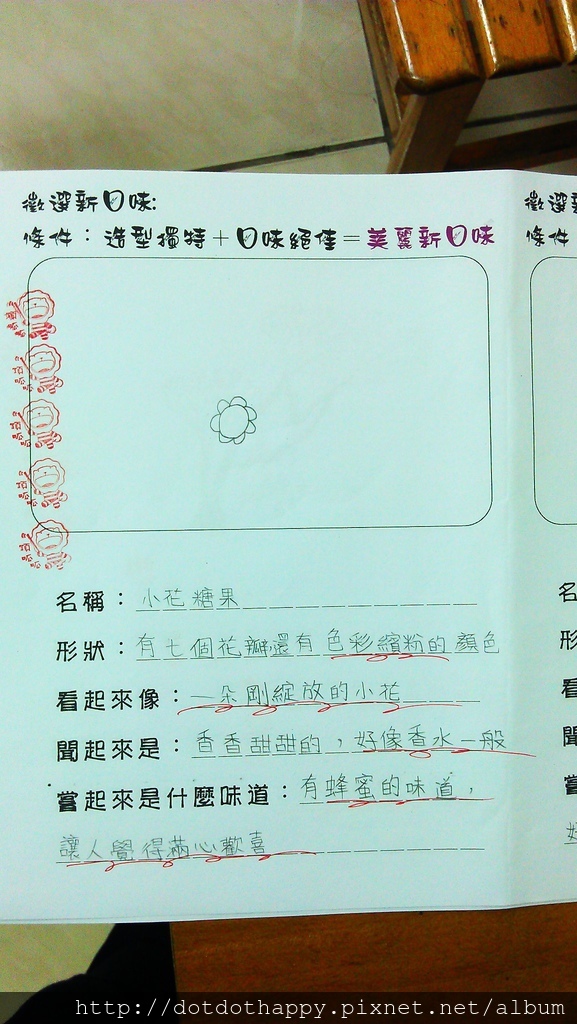 徵選新口味:
條件：造型獨特＋口味絕佳＝美麗新口味
名稱：小花糖果
形狀：有七個花瓣還有色彩繽紛的顏色
看起來像：一朵剛綻放的小花
聞起來是：香香甜甜的，好像香水一般
嘗起來是什麼味道：有蜂蜜的味道，
讓人覺得滿心歡喜
徵選新
條件
名
形
看
聞
嘗
http://dotdothappy.pixnet.net/album